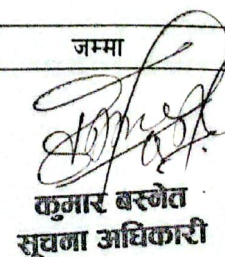 जम्मा
कुमार बस्नेत
सूचना अधिकारी